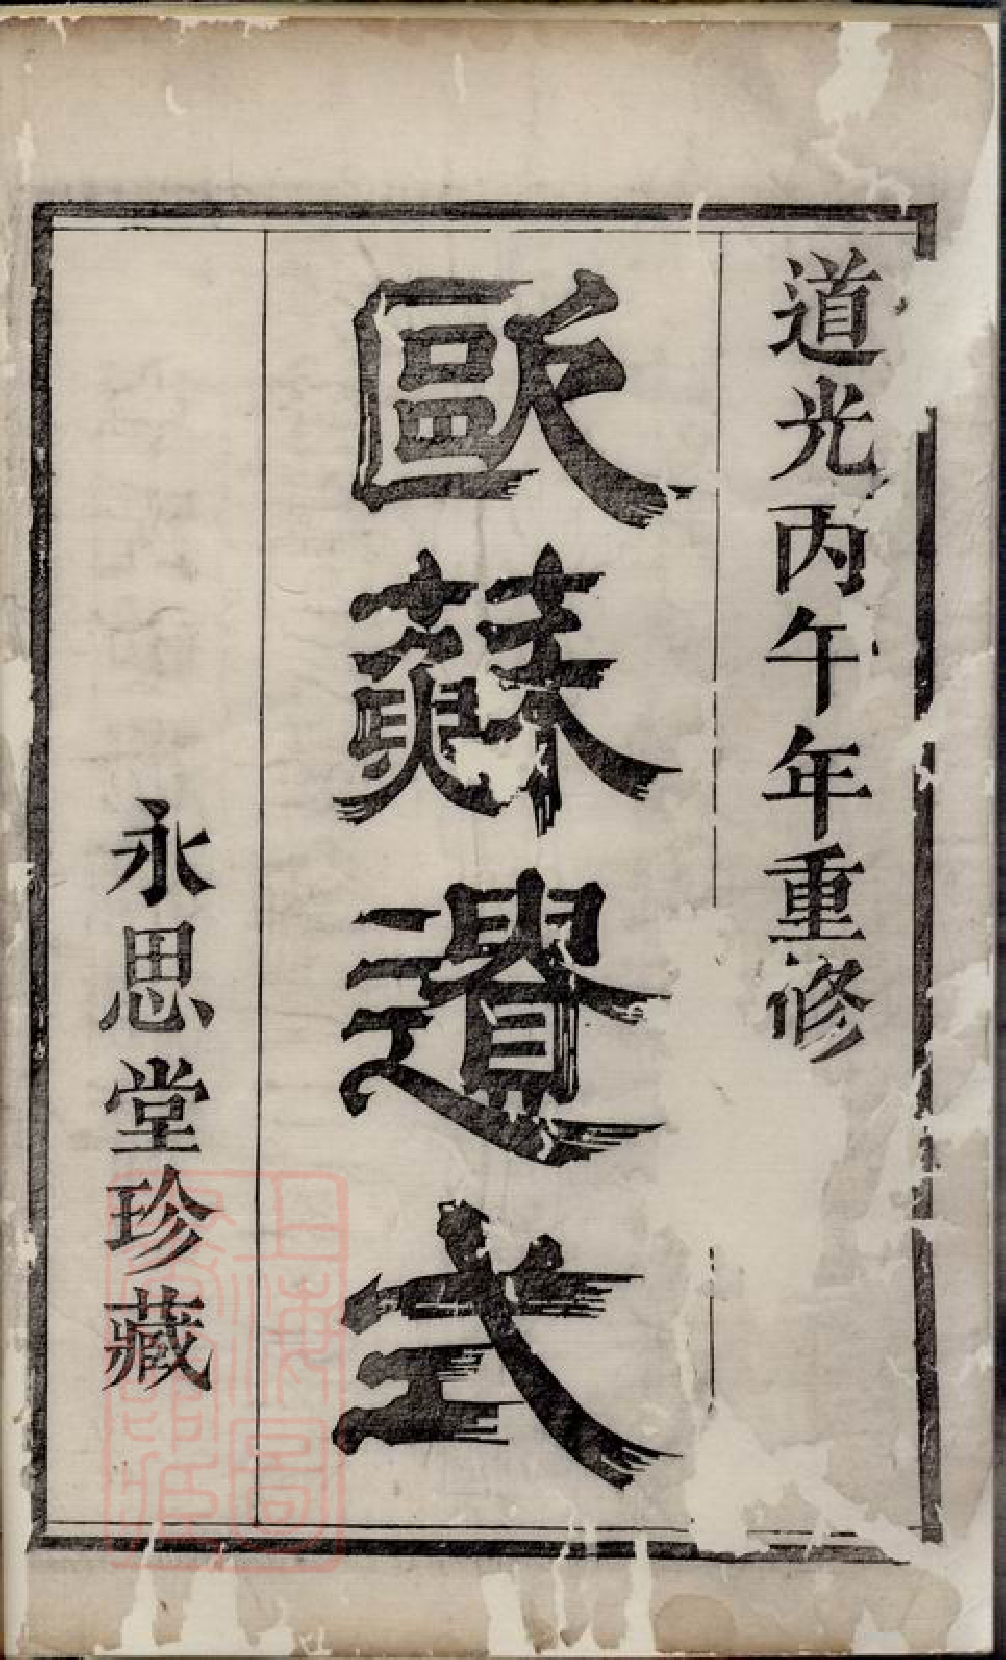 道光丙午年重修
歐蘇遺式
永思堂珍藏